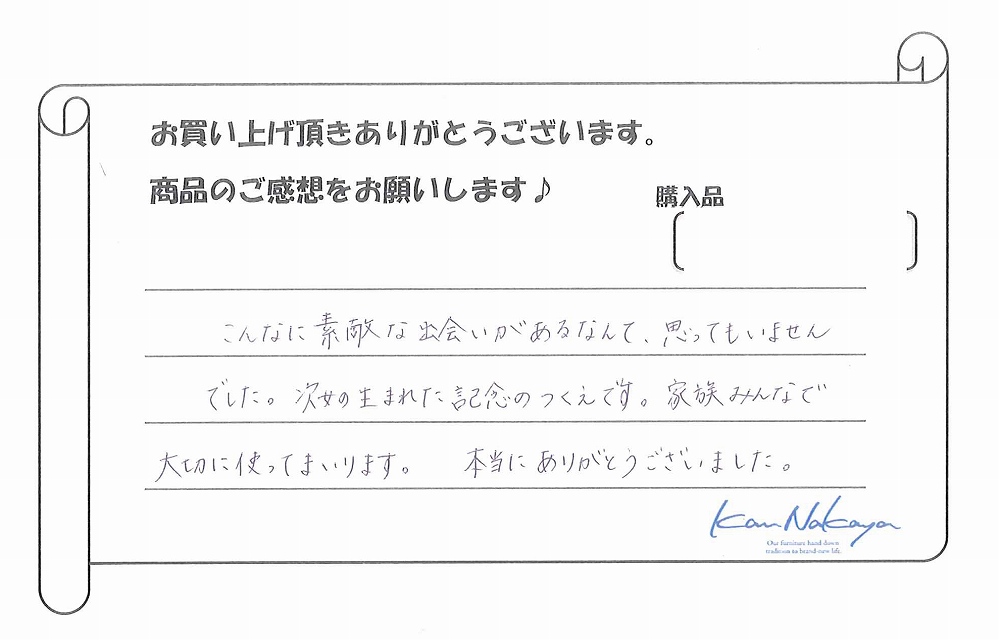 お買い上げ頂きありがとうございます。
商品のご感想をお願いします♪
購入品
こんなに素敵な出会いがあるなんて、思ってもいません
でした。次女の生まれた記念のつくえです。家族みんなで
大切に使ってまいります。 本当にありがとうございました。
Kan Nakaya
Our furniture hand down
tradition to brand-new life.